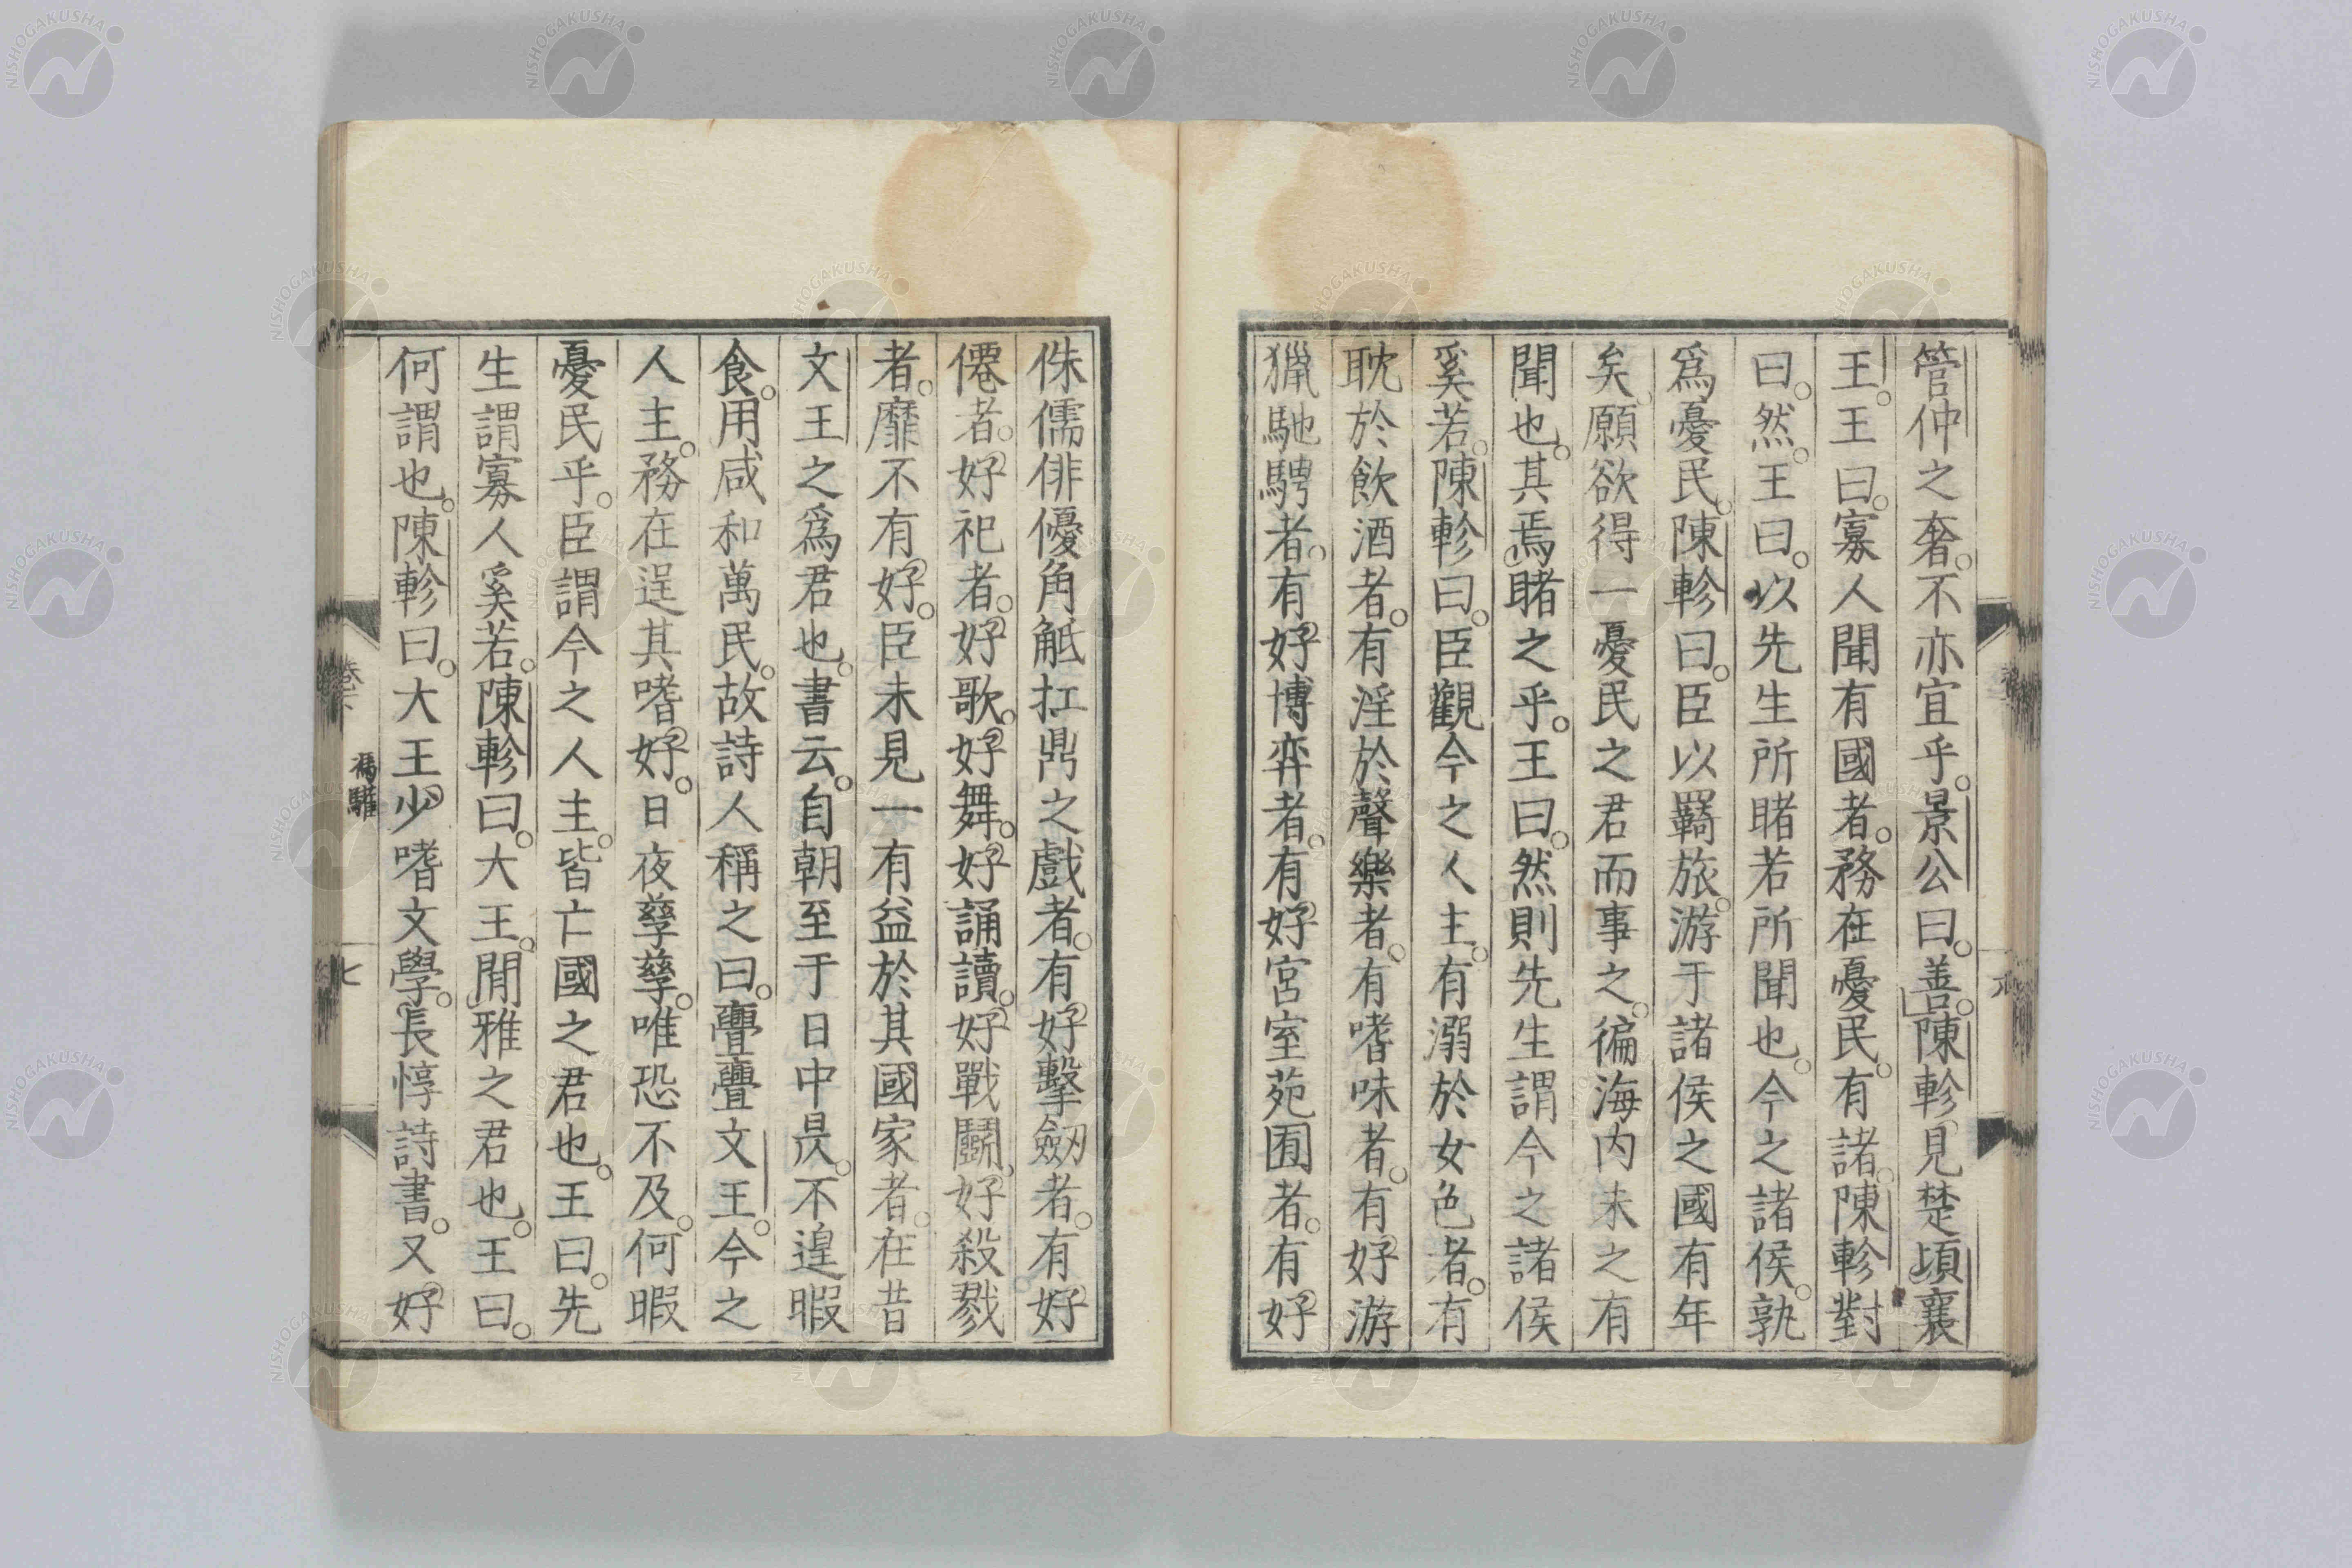 管仲之奢。不亦宜乎。景公曰。善。陳軫見楚頃襄
王。王曰。寡人聞有國者。務在憂民。有諸。陳軫對
曰。然。王曰。以先生所睹若所聞也。今之諸侯。孰
爲憂民。陳軫曰。臣以羇旅。游于諸侯之國有年
矣。願欲得一憂民之君而事之。徧海内未之有
聞也。其焉睹之乎。王曰。然則先生謂今之諸侯
奚若。陳軫曰。臣觀今之人主。有溺於女色者。有
耽於飲酒者。有淫於聲樂者。有嗜味者。有好游
獵馳騁者。有好博弈者。有好宮室苑囿者。有好
侏儒俳優角觝扛鼎之戲者。有好擊劒者。有好
僊者。好祀者。好歌。好舞。好誦讀。好戰鬭。好殺戮
者。靡不有好。臣未見一有益於其國家者。在昔
文王之爲君也。書云。自朝至于日中昃。不遑暇
食。用咸和萬民。故詩人稱之曰。亹亹文王。今之
人主。務在逞其嗜好。日夜孳孳。唯恐不及。何暇
憂民乎。臣謂今之人主。皆亡國之君也。王曰。先
生謂寡人奚若。陳軫曰。大王。閒雅之君也。王曰。
何謂也。陳軫曰。大王少嗜文學。長惇詩書。又好
七
NISHOGAKUSHA